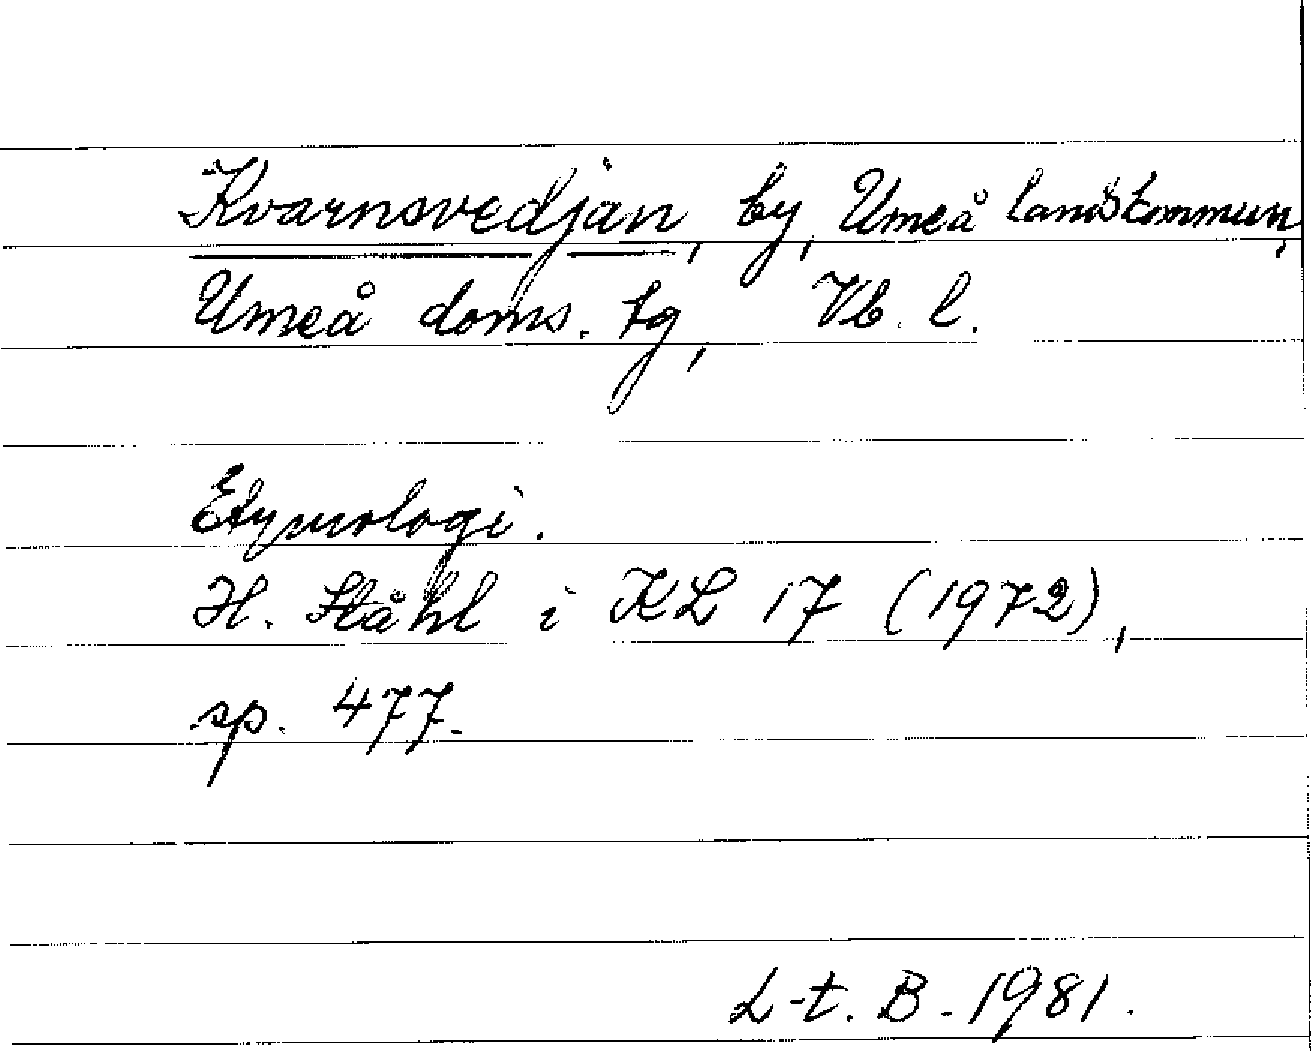 Kvarnsvedjan, by, Umeå landskommun,
Umeå doms. tg, Vb. l.
Etymologi.
H. Ståhl i KL 17 (1972),
sp. 477.
L-t. B. 1981.